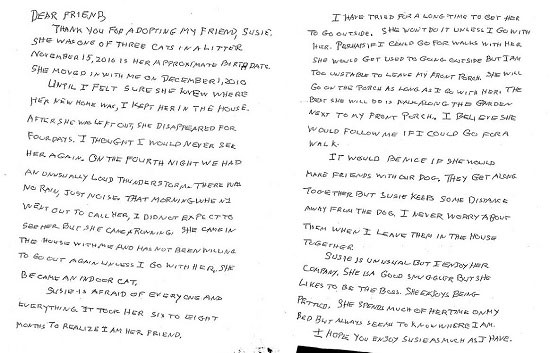 DEAR FRIEND,
THANK YOU FOR ADOPTING MY FRIEND, SUSIE.
SHE WAS ONE OF THREE CATS IN A LITTER
NOVEMBER 15, 2010 IS HER APPROXIMATE BIRTH DATE.
SHE MOVED IN WITH ME ON DECEMBER 1, 2010
UNTIL I FELT SURE SHE KNEW WHERE
HER NEW HOME WAS, I KEPT HER IN THE HOUSE.
AFTER SHE WAS LET OUT, SHE DISAPPEARED FOR
FOUR DAYS. I THOUGHT I WOULD NEVER SEE
HER AGAIN. ON THE FOURTH NIGHT WE HAD
AN UNUSUALLY LOUD THUNDERSTORM. THERE WAS
NO RAIN, JUST NOISE. THAT MORNING WHEN I
WENT OUT TO CALL HER, I DID NOT EXPECT TO
SEE HER BUT SHE CAME RUNNING. SHE CAME IN
THE HOUSE WITH ME AND HAS NOT BEEN WILLING
TO GO OUT AGAIN UNLESS I GO WITH HER, SHE
BECAME AN INDOOR CAT.
SUSIE IS AFRAID OF EVERYONE AND
EVERYTHING. IT TOOK HER SIX TO EIGHT
MONTHS TO REALIZE I AM HER FRIEND.
I HAVE TRIED FOR A LONG TIME TO GET HER
TO GO OUTSIDE. SHE WON'T DO IT UNLESS I GO WITH
HER. PERHAPS IF I COULD GO FOR WALKS WITH HER
SHE WOULD GET USED TO GOING OUTSIDE BUT I AM
TOO UNSTABLE TO LEAVE MY FRONT PORCH. SHE WILL
GO ON THE PORCH AS LONG AS I GO WITH HER. THE
BEST SHE WILL DO IS WALK ALONG THE GARDEN
NEXT TO MY FRONT PORCH. I BELIEVE SHE
WOULD FOLLOW ME IF I COULD GO FOR A
WALK.
IT WOULD BE NICE IF SHE WOULD
MAKE FRIENDS WITH OUR DOG. THEY GET ALONG
TOGETHER BUT SUSIE KEEPS SOME DISTANCE
AWAY FROM THE DOG. I NEVER WORRY ABOUT
THEM WHEN I LEAVE THEM IN THE HOUSE
TOGETHER
SUSIE IS UNUSUAL BUT I ENJOY HER
COMPANY. SHE IS A GOOD SNUGGLER BUT SHE
LIKES TO BE THE BOSS. SHE ENJOYS BEING
PETTED. SHE SPENDS MUCH OF HER TIME ON MY
BED BUT ALWAYS SEEMS TO KNOW WHERE I AM.
I HOPE YOU ENJOY SUSIE AS MUCH AS I HAVE.